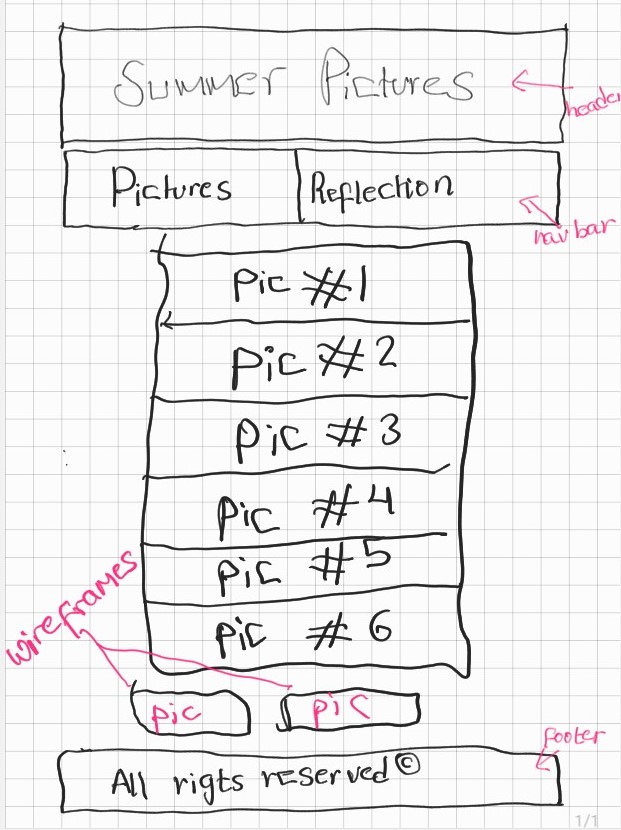 Summer Pictures
header
Pictures Reflection
navbar
Pic #1
Pic #2
Pic #3
Pic #4
Pic #5
Pic #6
wireframes
pic pic
footer
All rigts reserved ©
1/1